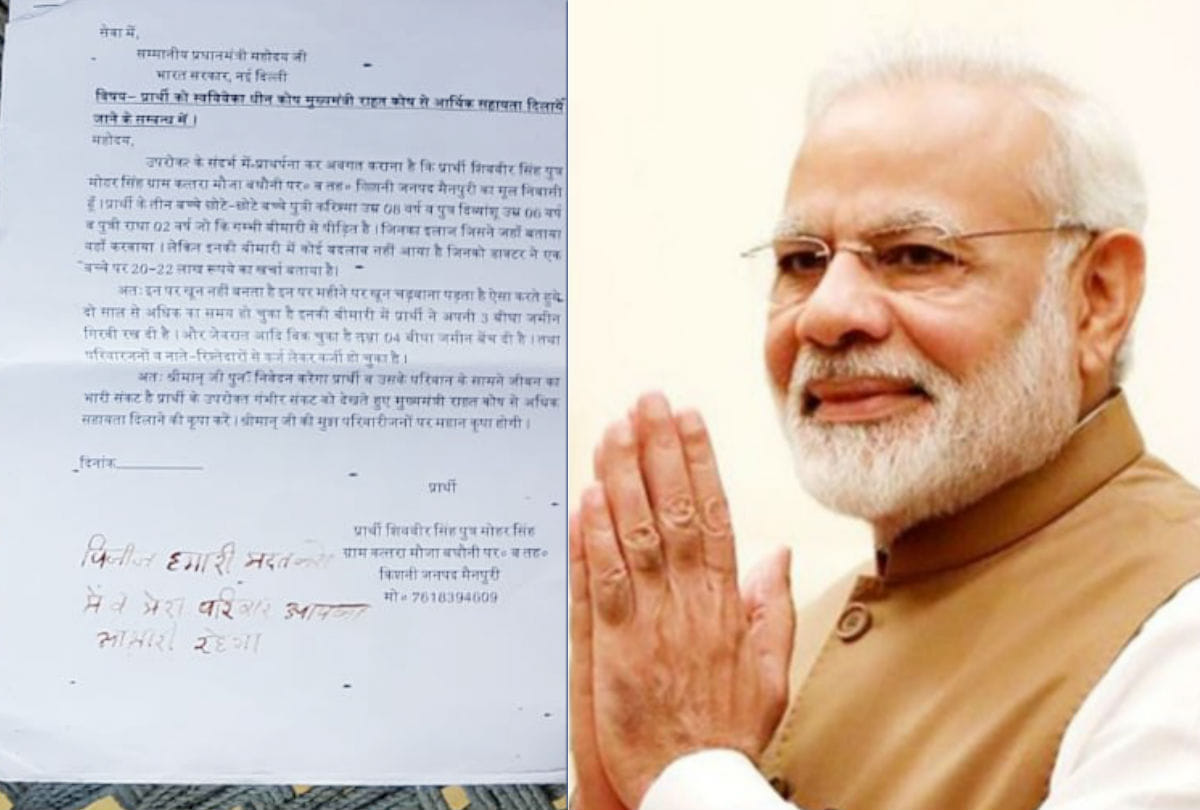 सेवा में,
सम्मानीय प्रधानमंत्री महोदय जी
भारत सरकार, नई दिल्ली
विषय– प्रार्थी को स्वविवेका धीन कोष मुख्यमंत्री राहत कोष से आर्थिक सहायता दिलायें
जाने के सम्बन्ध में ।
महोदय,
उपरोक्त के संदर्भ में प्रार्थपना कर अवगत कराना है कि प्रार्थी शिववीर सिंह पुत्र
मोहर सिंह ग्राम कत्तरा मौजा बधौनी पर० व तह० किशनी जनपद मैनपुरी का मूल निवासी
हूँ । प्रार्थी के तीन बच्चे छोटे–छोटे बच्चे पुत्री करिश्मा उम्र 08 वर्ष व पुत्र दिव्यांशू उम्र 06 वर्ष
व पुत्री राधा 02 वर्ष जो कि गम्भी बीमारी से पीड़ित है । जिनका इलाज जिसने जहाँ बताया
वहाँ करवाया । लेकिन इनकी बीमारी में कोई बदलाव नहीं आया है जिनको डाक्टर ने एक
बच्चे पर 20–22 लाख रूपये का खर्चा बताया है।
अतः इन पर खून नहीं बनता है इन पर महीने पर खून चढ़वाना पड़ता है ऐसा करते हुये
दो साल से अधिक का समय हो चुका है इनकी बीमारी में प्रार्थी ने अपनी 3 बीघा जमीन
गिरवी रख दी है । और जेवरात आदि बिक चुका है तथा 04 बीघा जमीन बेंच दी है । तथा
परिवारजनों व नाते–रिश्तेदारों से कर्ज लेकर कर्जी हो चुका है ।
अतः श्रीमान् जी पुनः निवेदन करेगा प्रार्थी व उसके परिवान के सामने जीवन का
भारी संकट है प्रार्थी के उपरोक्त गंभीर संकट को देखते हुए मुख्यमंत्री राहत कोष से अधिक
सहायता दिलाने की कृपा करें । श्रीमान् जी की मुझ परिवारीजनों पर महान कृपा होगी ।
दिनांक
प्रार्थी
प्रार्थी शिववीर सिंह पुत्र मोहर सिंह
ग्राम कत्तरा मौजा बधौनी पर० व तह०
किशनी जनपद मैनपुरी
मो० 7618394609
पिलीज हमारी मदत करो
मैं व मेरा परिवार आपका
आभारी रहेगा